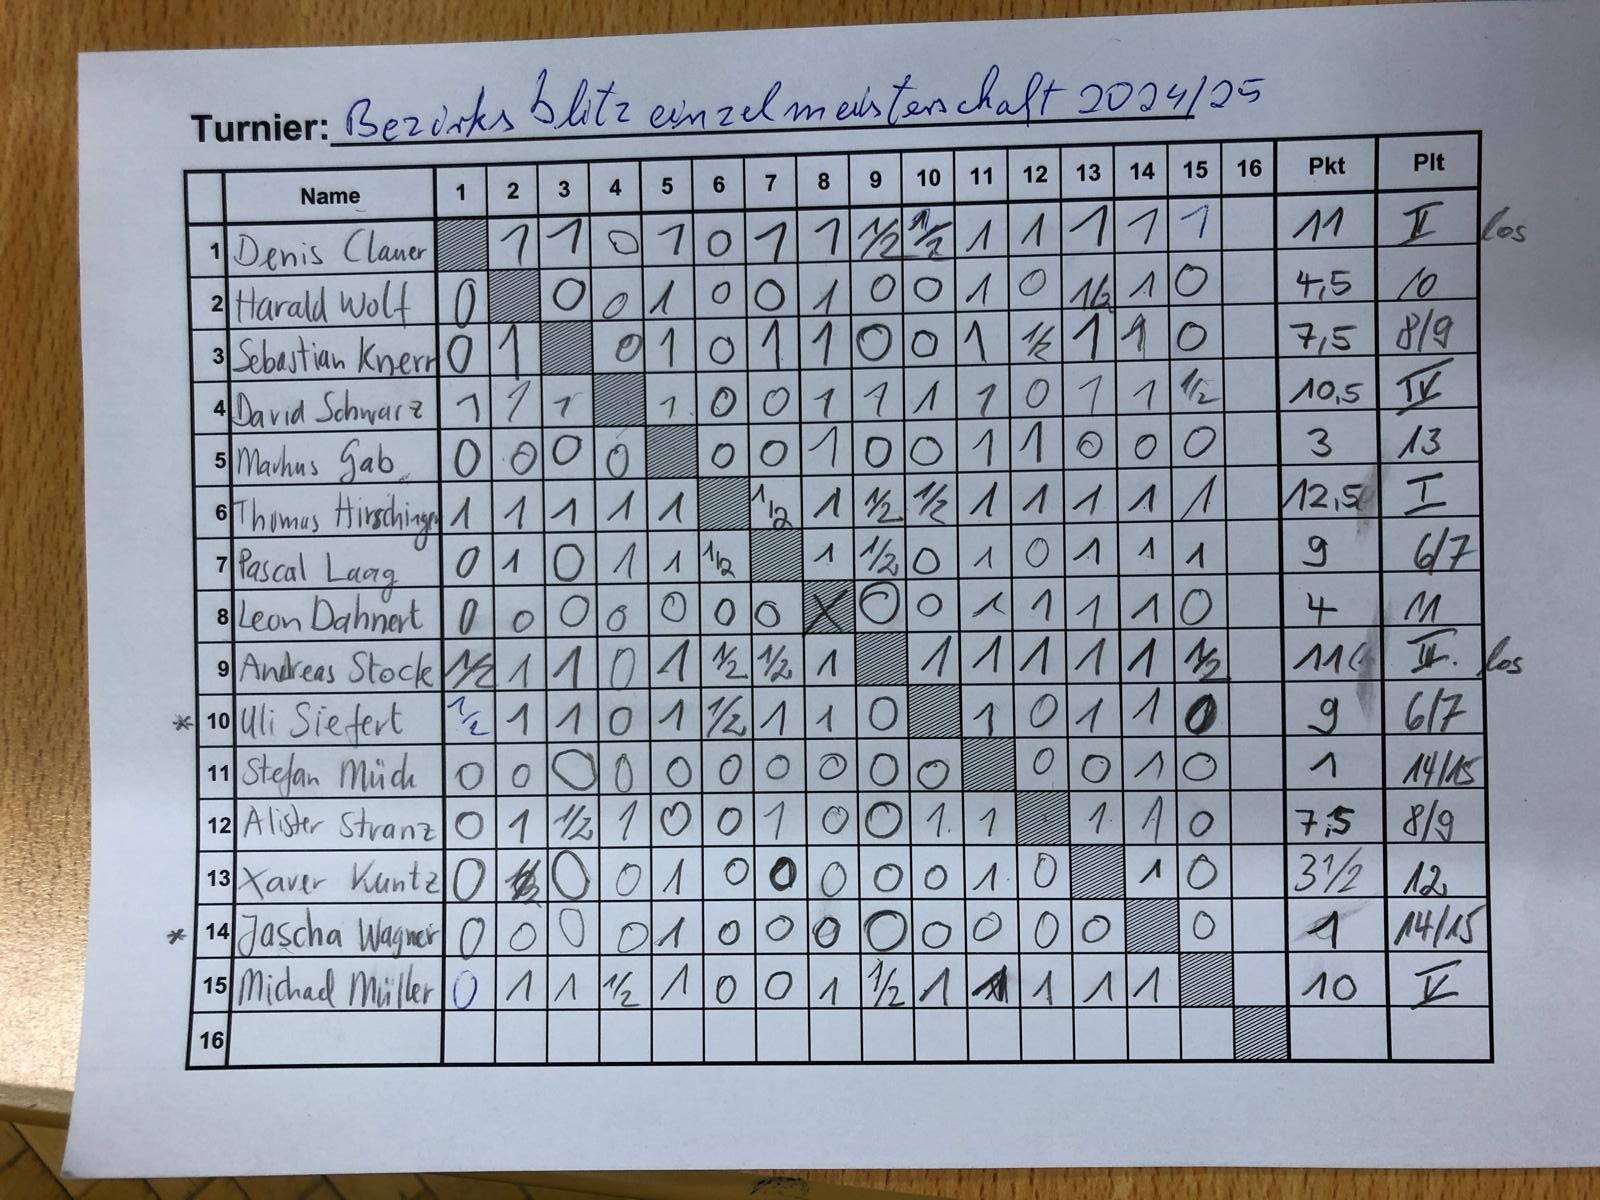 Turnier: Bezirks blitzeinzelmeisterschaft 2024/25
Name 1 2 3 4 5 6 7 8 9 10 11 12 13 14 15 16 Pkt Plt
1 Denis Clauer 1 1 0 1 0 1 1 1/2 1/2 1 1 1 1 1 11 II los
2 Harald Wolf 0 0 0 1 0 0 1 0 0 1 0 1/2 1 0 4,5 10
3 Sebastian Knerr 0 1 0 1 0 1 1 0 0 1 1/2 1 1 0 7,5 8/9
4 David Schwarz 1 1 1 1 0 0 1 1 1 1 0 1 1 1/2 10,5 IV
5 Markus Gab 0 0 0 0 0 0 1 0 0 1 1 0 0 0 3 13
6 Thomas Hirschinger 1 1 1 1 1 1/2 1 1/2 1/2 1 1 1 1 1 12,5 I
7 Pascal Laag 0 1 0 1 1 1/2 1 1/2 0 1 0 1 1 1 9 6/7
8 Leon Dahnert 0 0 0 0 0 0 0 X 0 0 1 1 1 1 0 4 11
9 Andreas Stock 1/2 1 1 0 1 1/2 1/2 1 1 1 1 1 1 1/2 11 II. los
* 10 Uli Siefert 1/2 1 1 0 1 1/2 1 1 0 1 0 1 1 0 9 6/7
11 Stefan Müch 0 0 0 0 0 0 0 0 0 0 0 0 1 0 1 14/15
12 Alister Stranz 0 1 1/2 1 0 0 1 0 0 1 1 1 1 0 7,5 8/9
13 Xaver Kuntz 0 1/2 0 0 1 0 0 0 0 0 1 0 1 0 3 1/2 12
* 14 Jascha Wagner 0 0 0 0 1 0 0 0 0 0 0 0 0 0 1 14/15
15 Michael Müller 0 1 1 1/2 1 0 0 1 1/2 1 1 1 1 1 10 V
16